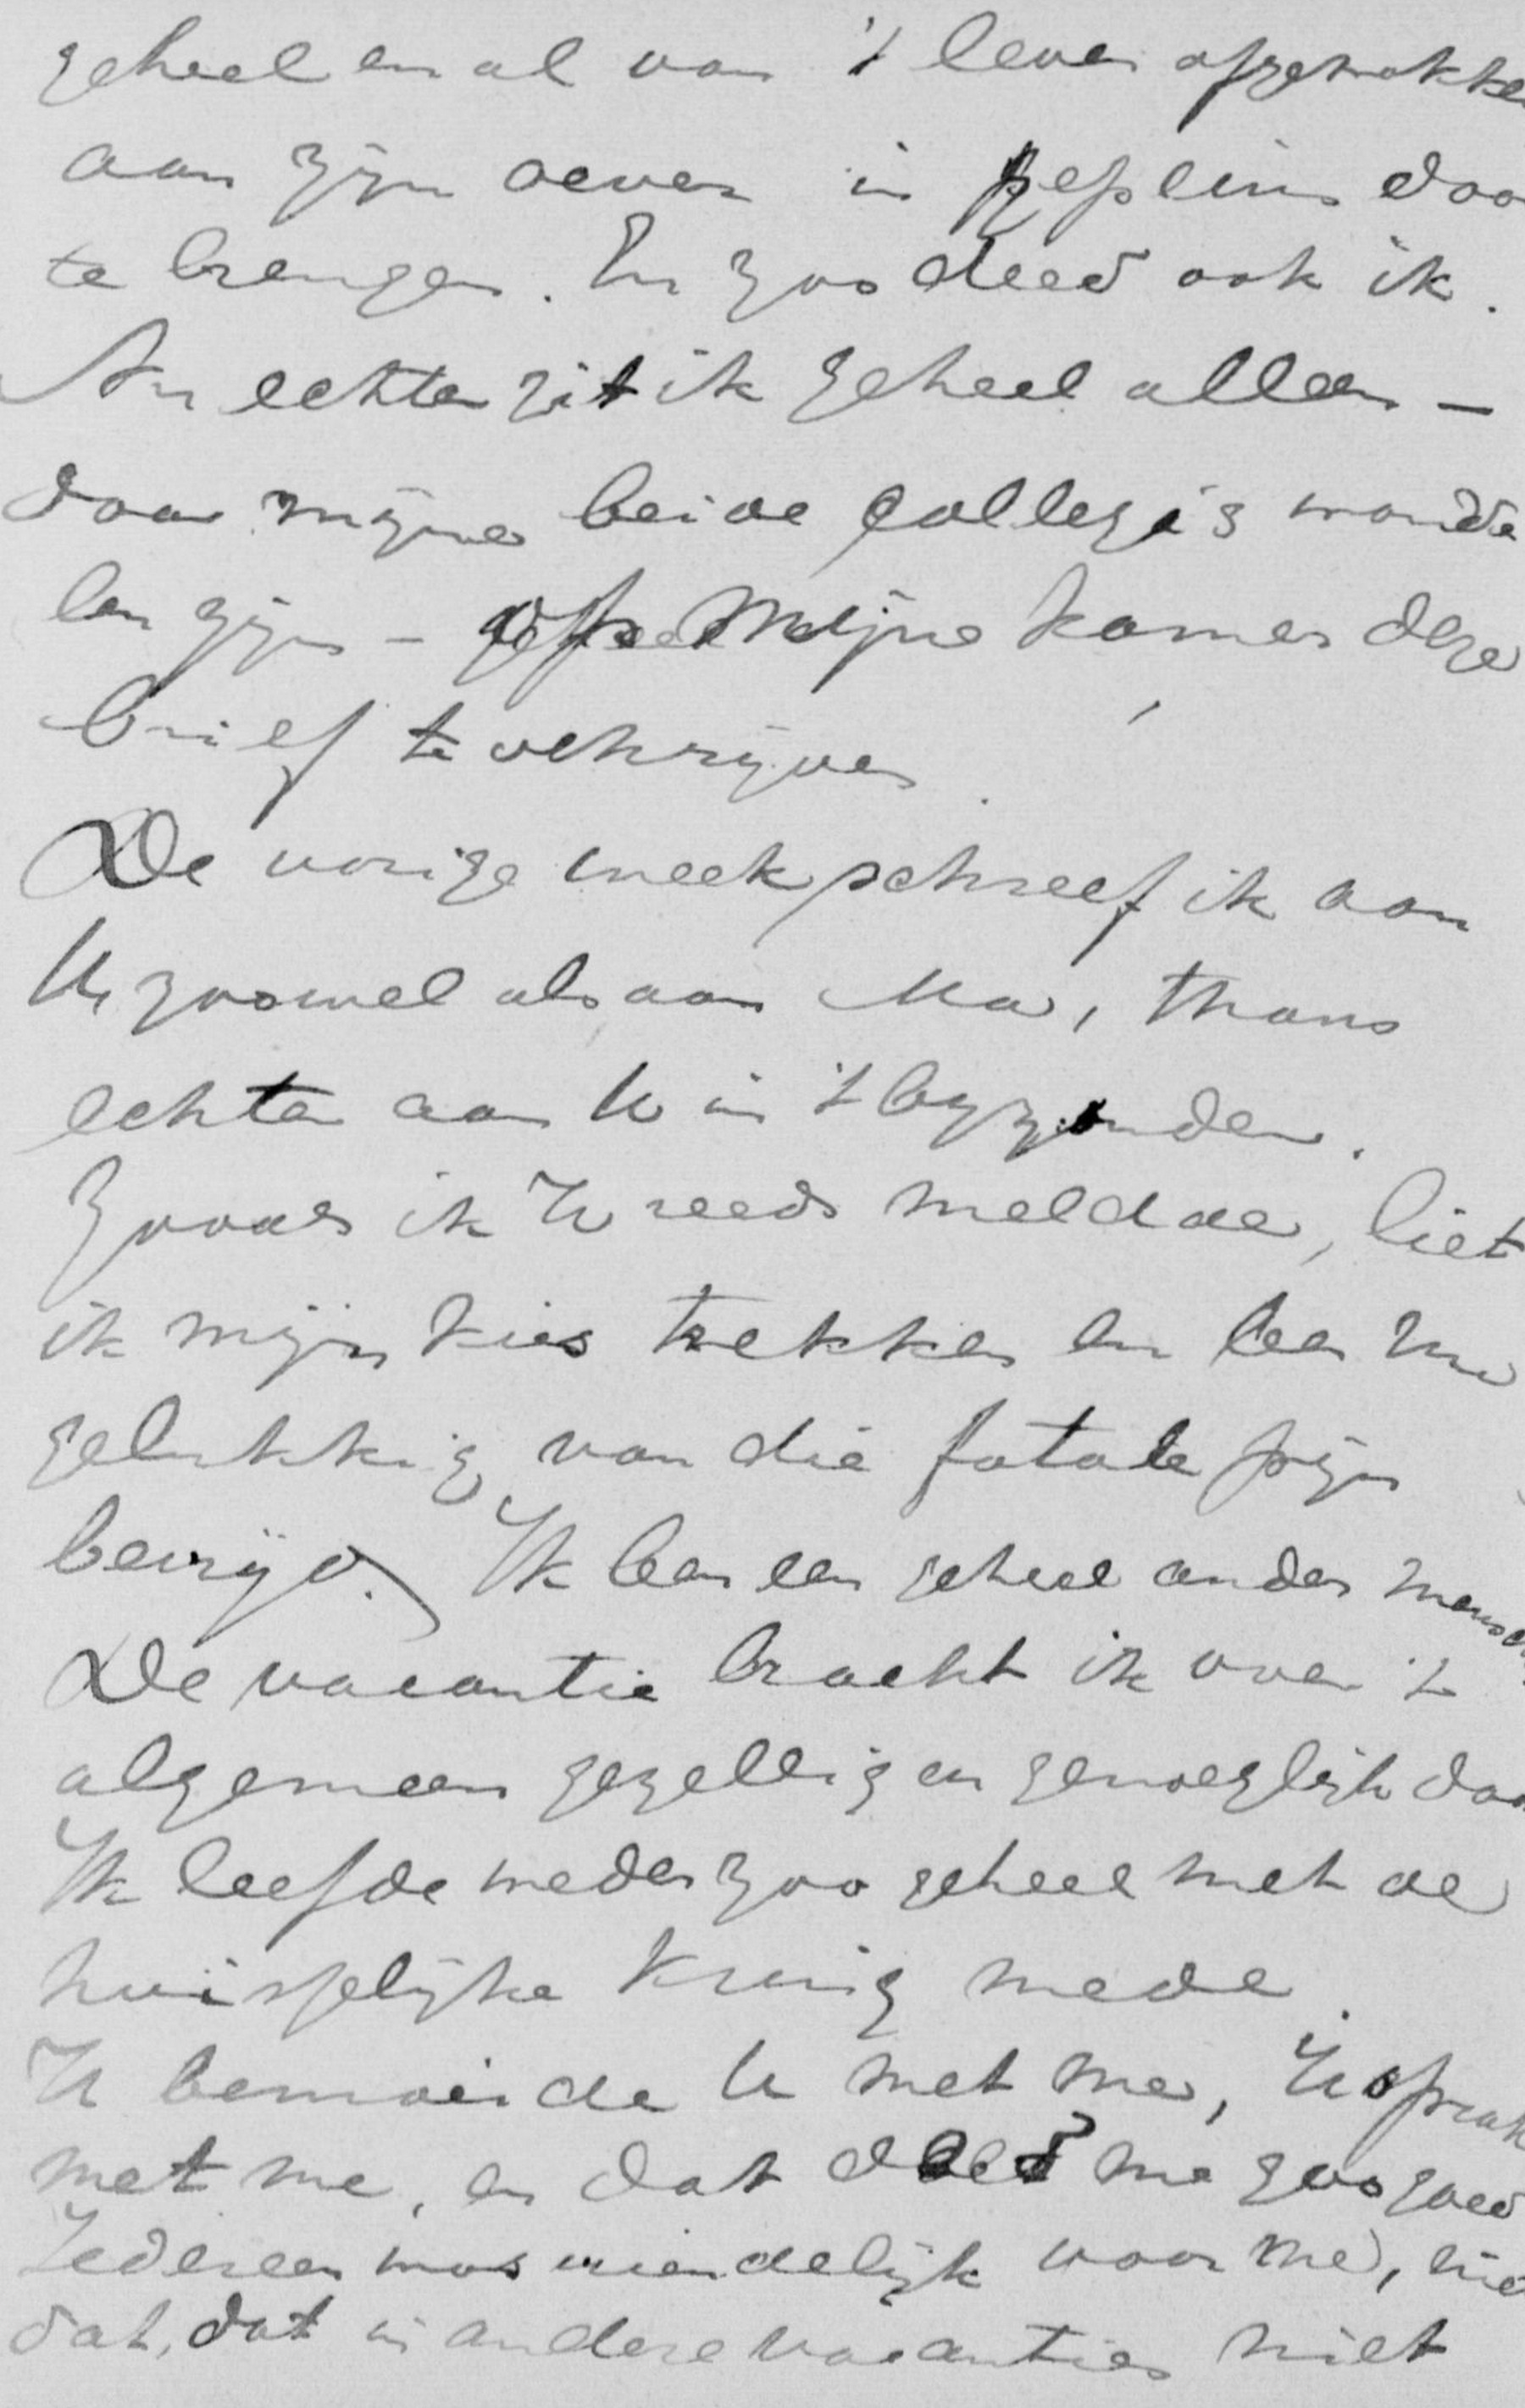 geheel en al van 't leven afgetrokken
aan zijn oever in gepeins door
te brengen. En zoo deed ook ik.
Nu echter zit ik geheel alleen -
daar mijne beide collega's wande
len zijn - op mijne kamer deze
brief te schrijven.
De vorige week schreef ik aan
U, zoowel als aan Ma, thans
echter aan U in 't byzonder.
Zooals ik U reeds meldde, liet
ik mijn kies trekken en ben nu
gelukkig van die fatale pijn
bevrijd. Ik ben een geheel ander mensch.
De vacantie bracht ik over 't
algemeen gezellig en genoeglijk door
Ik leefde weder zoo geheel met de
huisselijke kring mede.
U bemoeide U met me, U sprak
met me, en dat deed me zoo goed
Iedereen was vriendelijk voor me, niet
dat, dat in andere vacanties niet